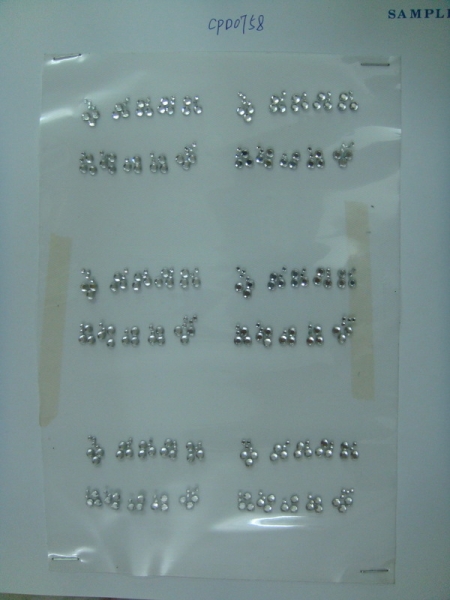 CPD0758
SAMPL